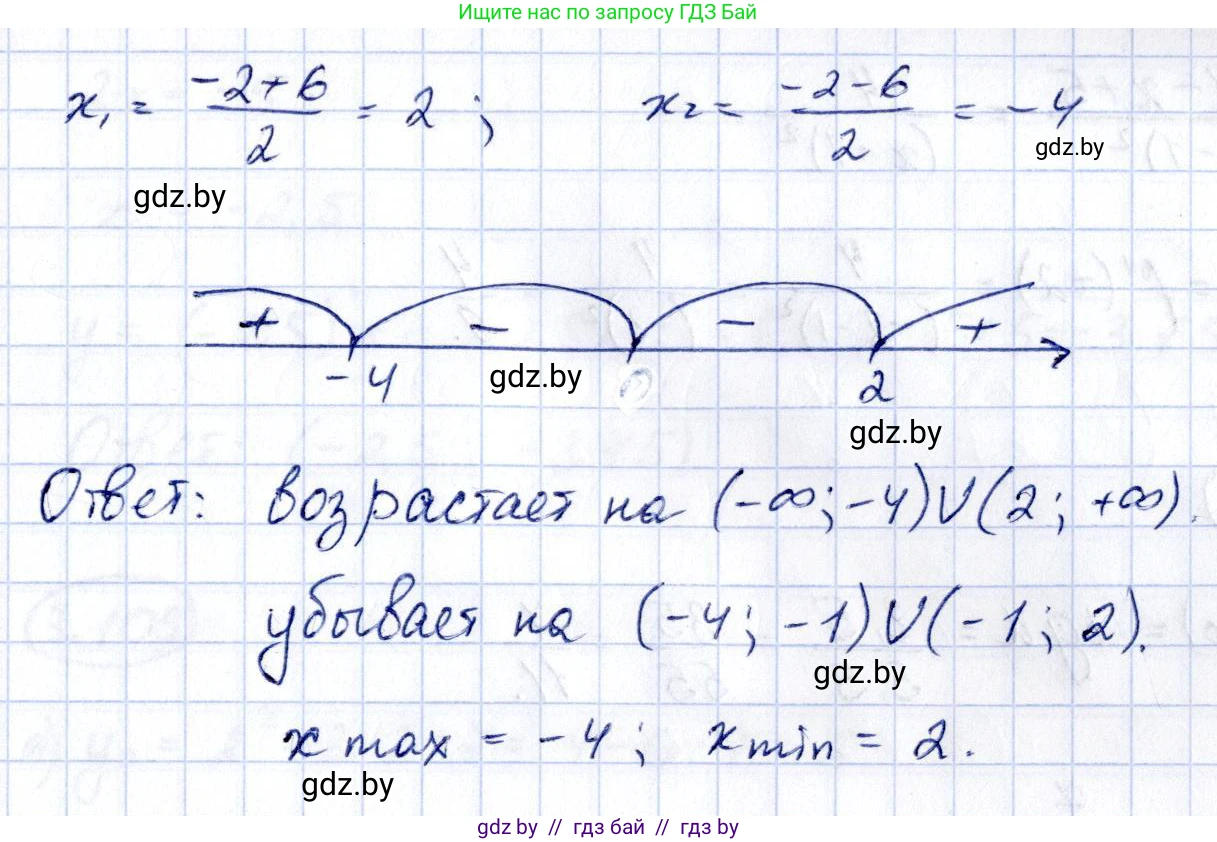 Ищите нас по запросу ГДЗ Бай
x₁ = (-2+6)/2 = 2 ; x₂ = (-2-6)/2 = -4
gdz.by
gdz.by
+ - - +
-4 2
gdz.by
gdz.by
Ответ: возрастает на (-∞; -4)∪(2; +∞).
убывает на (-4; -1)∪(-1; 2).
gdz.by
x max = -4; x min = 2.
gdz.by
gdz.by // гдз бай // gdz.by